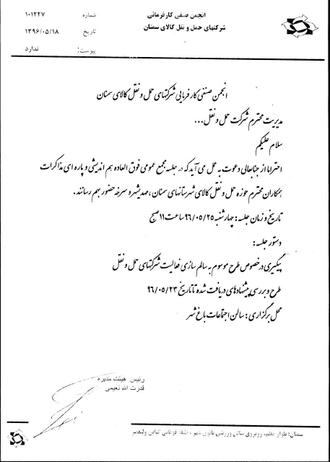 انجمن صنفی کارفرمائی
شرکتهای حمل و نقل کالای سمنان
شماره ۱۰۱۲۲۷
تاریخ ۱۳۹۶/۰۵/۱۸
پیوست: ندارد
انجمن صنفی کارفرمایی شرکتهای حمل و نقل کالای سمنان
مدیریت محترم شرکت حمل و نقل...
سلام علیکم
احتراما از جنابعالی دعوت به عمل می آید که در جلسه مجمع عمومی فوق العاده هم اندیشی و پاره ای مذاکرات
همکاران محترم حوزه حمل و نقل کالای شهرستانهای سمنان، مهدیشهر و سرخه حضور بهم رسانند.
تاریخ و زمان جلسه: چهارشنبه ۹۶/۰۵/۲۵ ساعت ۱۱ صبح
دستور جلسه:
پیگیری در خصوص طرح موسوم به سالم سازی فعالیت شرکتهای حمل و نقل
طرح و بررسی پیشنهادهای دریافت شده تا تاریخ ۹۶/۰۵/۲۳
محل برگزاری: سالن اجتماعات باغ شهر
رئیس هیئت مدیره
قدرت الله نعیمی
سمنان: بلوار